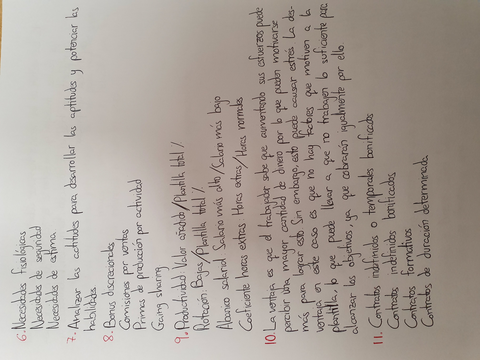 6. Necesidades fisiológicas
Necesidades de seguridad
Necesidades de estima
7. Analizar las actitudes para desarrollar las aptitudes y potenciar las
habilidades
8. Bonus discrecionales
Comisiones por ventas
Primas de producción por actividad
Gains sharing
9. Productividad Valor añadido/Plantilla total/
Rotación Bajas/Plantilla total/
Abanico salarial Salario más alto/Salario más bajo
Coeficiente horas extras Horas extras/Horas normales
10. La ventaja es que el trabajador sabe que aumentando sus esfuerzos puede
percibir una mayor cantidad de dinero por lo que pueden motivarse
más para lograr esto. Sin embargo, esto puede causar estrés. La des-
ventaja en este caso es que no hay factores que motiven a la
plantilla, lo que puede llevar a que no trabajen lo suficiente para
alcanzar los objetivos, ya que cobrarán igualmente por ello
11. Contratos indefinidos o temporales bonificados
Contratos indefinidos bonificados
Contratos formativos
Contratos de duración determinada